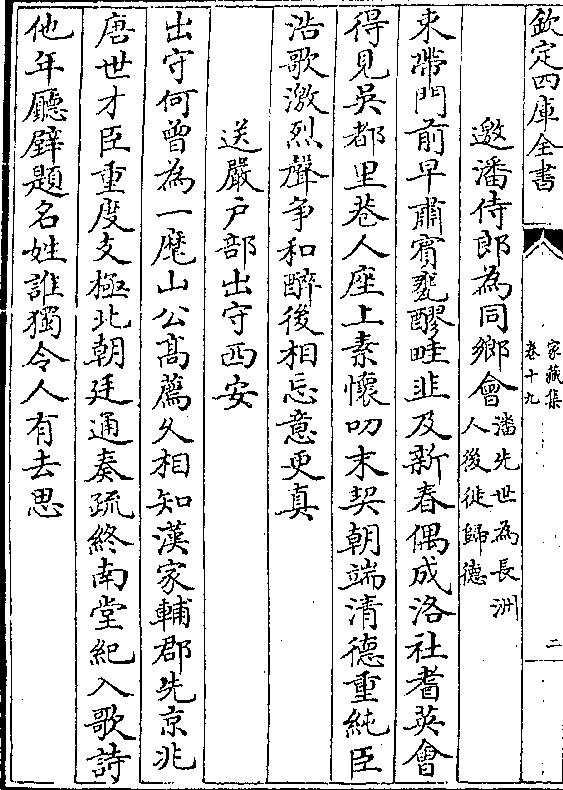 欽定四庫全書
家藏集
卷十九
二
邀潘侍郎為同鄉會潘先世為長洲
人後徙歸德
束帶門前早肅賓甕醪畦韭及新春偶成洛社耆英會
得見吳都里巷人座上素懷叨末契朝端清德重純臣
浩歌激烈聲爭和醉後相忘意更真
送嚴户部出守西安
出守何曾為一麾山公髙薦久相知漢家輔郡先京兆
唐世才臣重度支極北朝廷通奏疏終南堂紀入歌詩
他年廳壁題名姓誰獨令人有去思